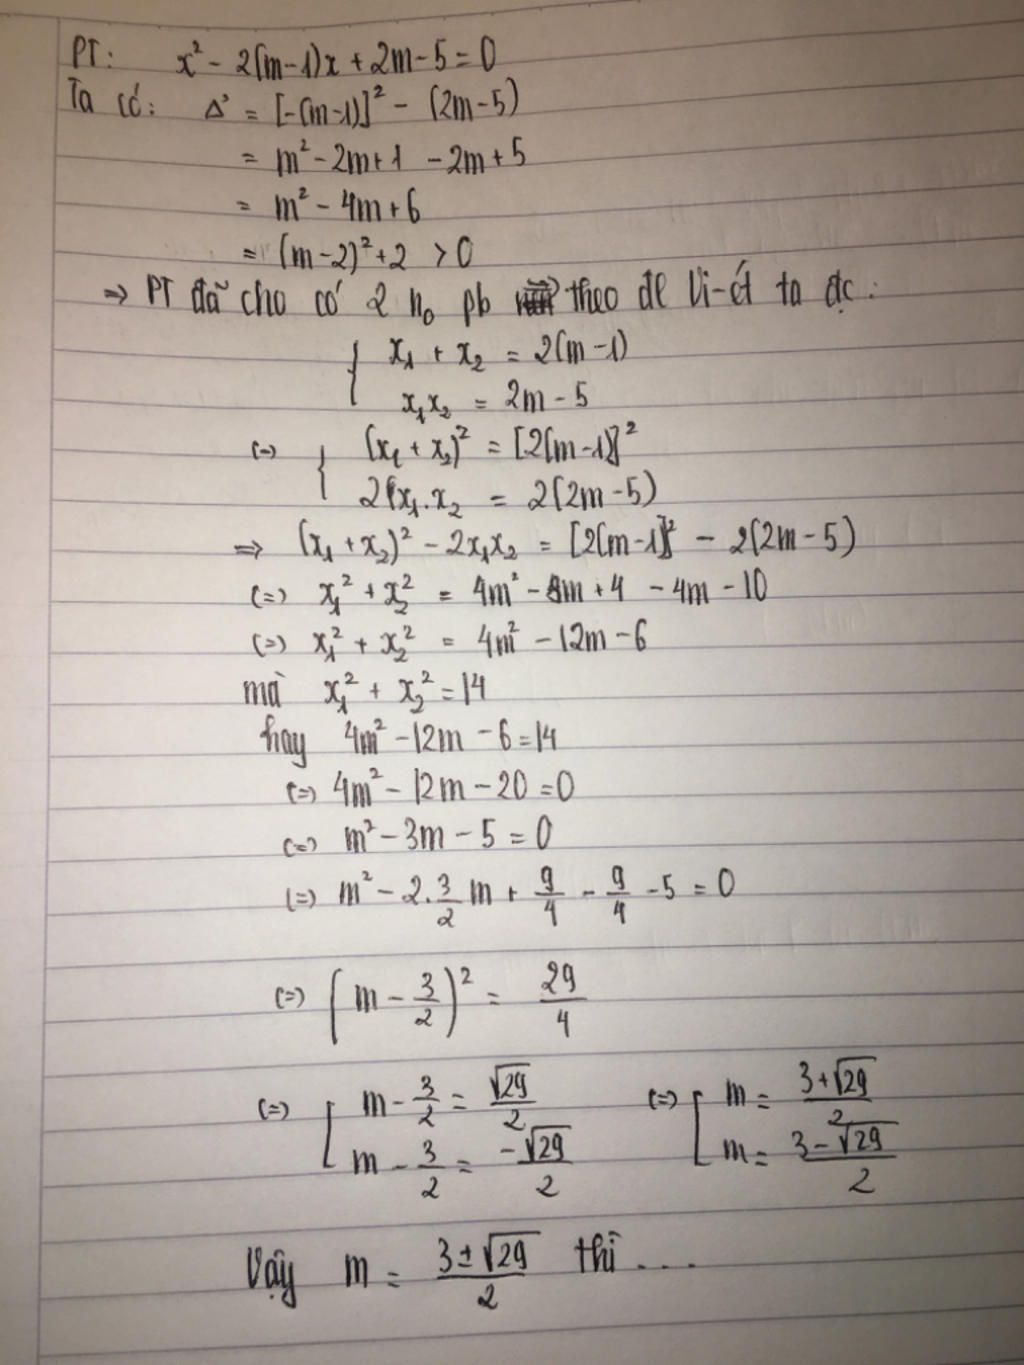 PT: x² - 2(m-1)x + 2m - 5 = 0
Ta có: Δ' = [-(m-1)]² - (2m-5)
= m² - 2m + 1 - 2m + 5
= m² - 4m + 6
= (m-2)² + 2 > 0
⇒ PT đã cho có 2 n₀ pb theo đl Vi-ét ta đc:
{ x₁ + x₂ = 2(m-1)
x₁x₂ = 2m - 5
(-) { (x₁ + x₂)² = [2(m-1)]²
2(x₁.x₂ = 2(2m-5)
⇒ (x₁ + x₂)² - 2x₁x₂ = [2(m-1)]² - 2(2m-5)
(=) x₁² + x₂² = 4m² - 8m + 4 - 4m - 10
(=) x₁² + x₂² = 4m² - 12m - 6
mà x₁² + x₂² = 14
hay 4m² - 12m - 6 = 14
(=) 4m² - 12m - 20 = 0
(=) m² - 3m - 5 = 0
(=) m² - 2.3/2 m + 9/4 - 9/4 - 5 = 0
(=) (m - 3/2)² = 29/4
(=) [ m - 3/2 = √29/2 (=) [ m = 3+√29/2
m - 3/2 = -√29/2 m = 3-√29/2
Vậy m = 3±√29/2 thì ...